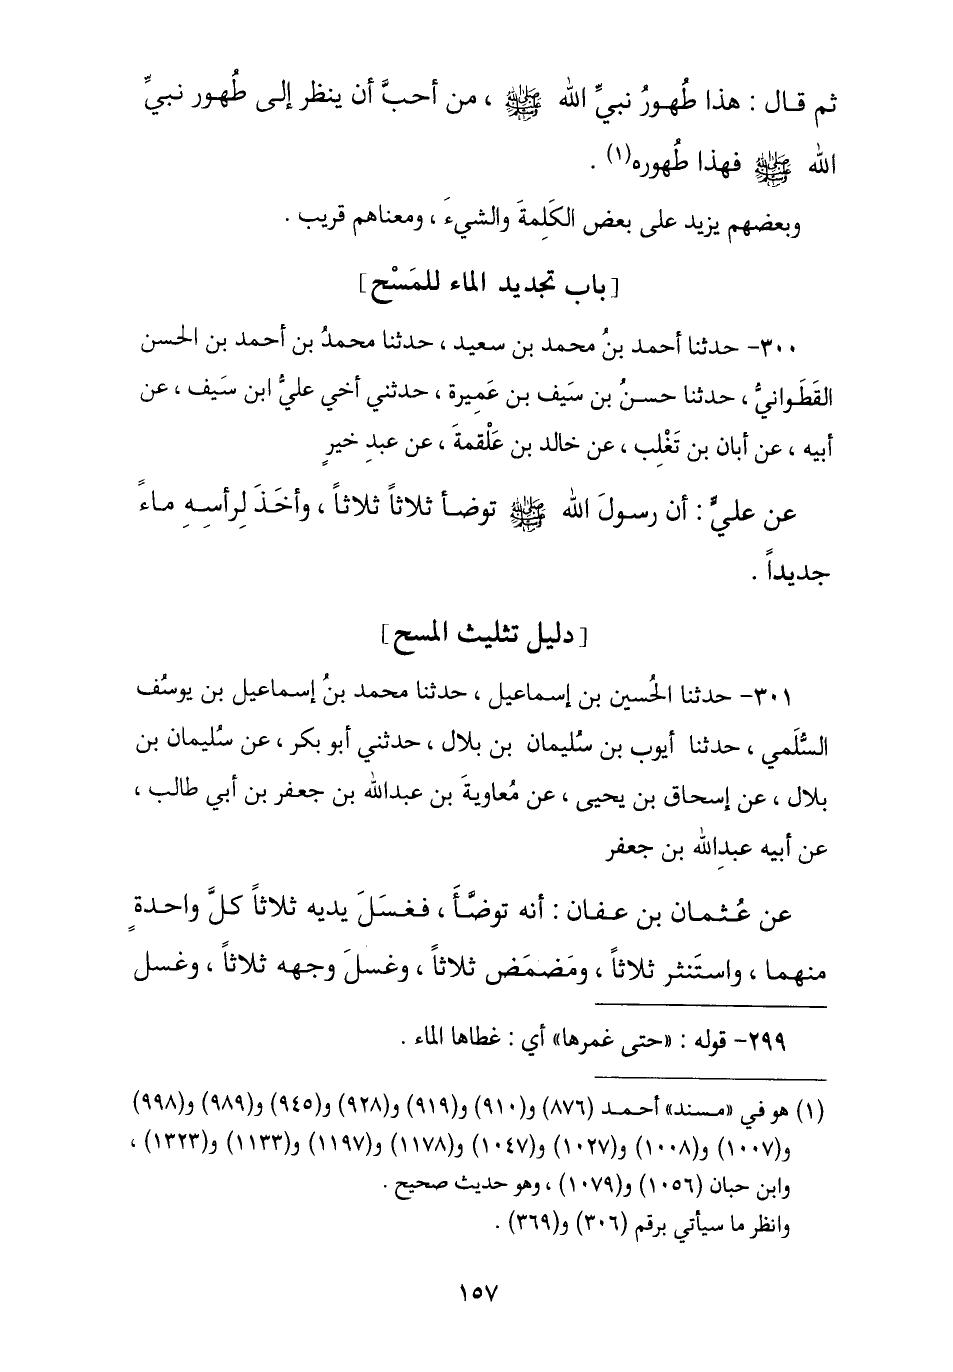 ثم قال : هذا طُهورُ نبيِّ الله ﷺ ، من أحبَّ أن ينظر إلى طُهور نبيِّ
الله ﷺ فهذا طُهوره(١) .
وبعضهم يزيد على بعض الكَلِمةَ والشيءَ ، ومعناهم قريب .
[باب تجديد الماء للمَسْح]
٣٠٠- حدثنا أحمد بنُ محمد بن سعيد ، حدثنا محمدُ بن أحمد بن الحسن
القَطَوانيُّ ، حدثنا حسنُ بن سَيف بن عَمِيرة ، حدثني أخي عليُّ ابن سَيف ، عن
أبيه ، عن أبان بن تَغْلِب ، عن خالد بن عَلْقمةَ ، عن عبدِ خيرٍ
عن عليٍّ : أن رسولَ الله ﷺ توضأ ثلاثاً ثلاثاً ، وأخَذَ لِرأسِهِ ماءً
جديداً .
[دليل تثليث المسح]
٣٠١- حدثنا الحُسين بن إسماعيل ، حدثنا محمد بنُ إسماعيل بن يوسُف
السُّلَمي ، حدثنا أيوب بن سُليمان بن بلال ، حدثني أبو بكر ، عن سُليمان بن
بلال ، عن إسحاق بن يحيى ، عن مُعاويةَ بن عبدالله بن جعفر بن أبي طالب ،
عن أبيه عبدِالله بن جعفر
عن عُثمان بن عفان : أنه توضَّأَ ، فغسَلَ يديه ثلاثاً كلَّ واحدةٍ
منهما ، واستَنثر ثلاثاً ، ومَضمَض ثلاثاً ، وغسلَ وجهه ثلاثاً ، وغسل
٢٩٩- قوله : «حتى غمرها» أي : غطاها الماء .
(١) هو في «مسند» أحمد (٨٧٦) و(٩١٠) و(٩١٩) و(٩٢٨) و(٩٤٥) و(٩٨٩) و(٩٩٨)
و(١٠٠٧) و(١٠٠٨) و(١٠٢٧) و(١٠٤٧) و(١١٧٨) و(١١٩٧) و(١١٣٣) و(١٣٢٣) ،
وابن حبان (١٠٥٦) و(١٠٧٩) ، وهو حديث صحيح .
وانظر ما سيأتي برقم (٣٠٦) و(٣٦٩) .
١٥٧